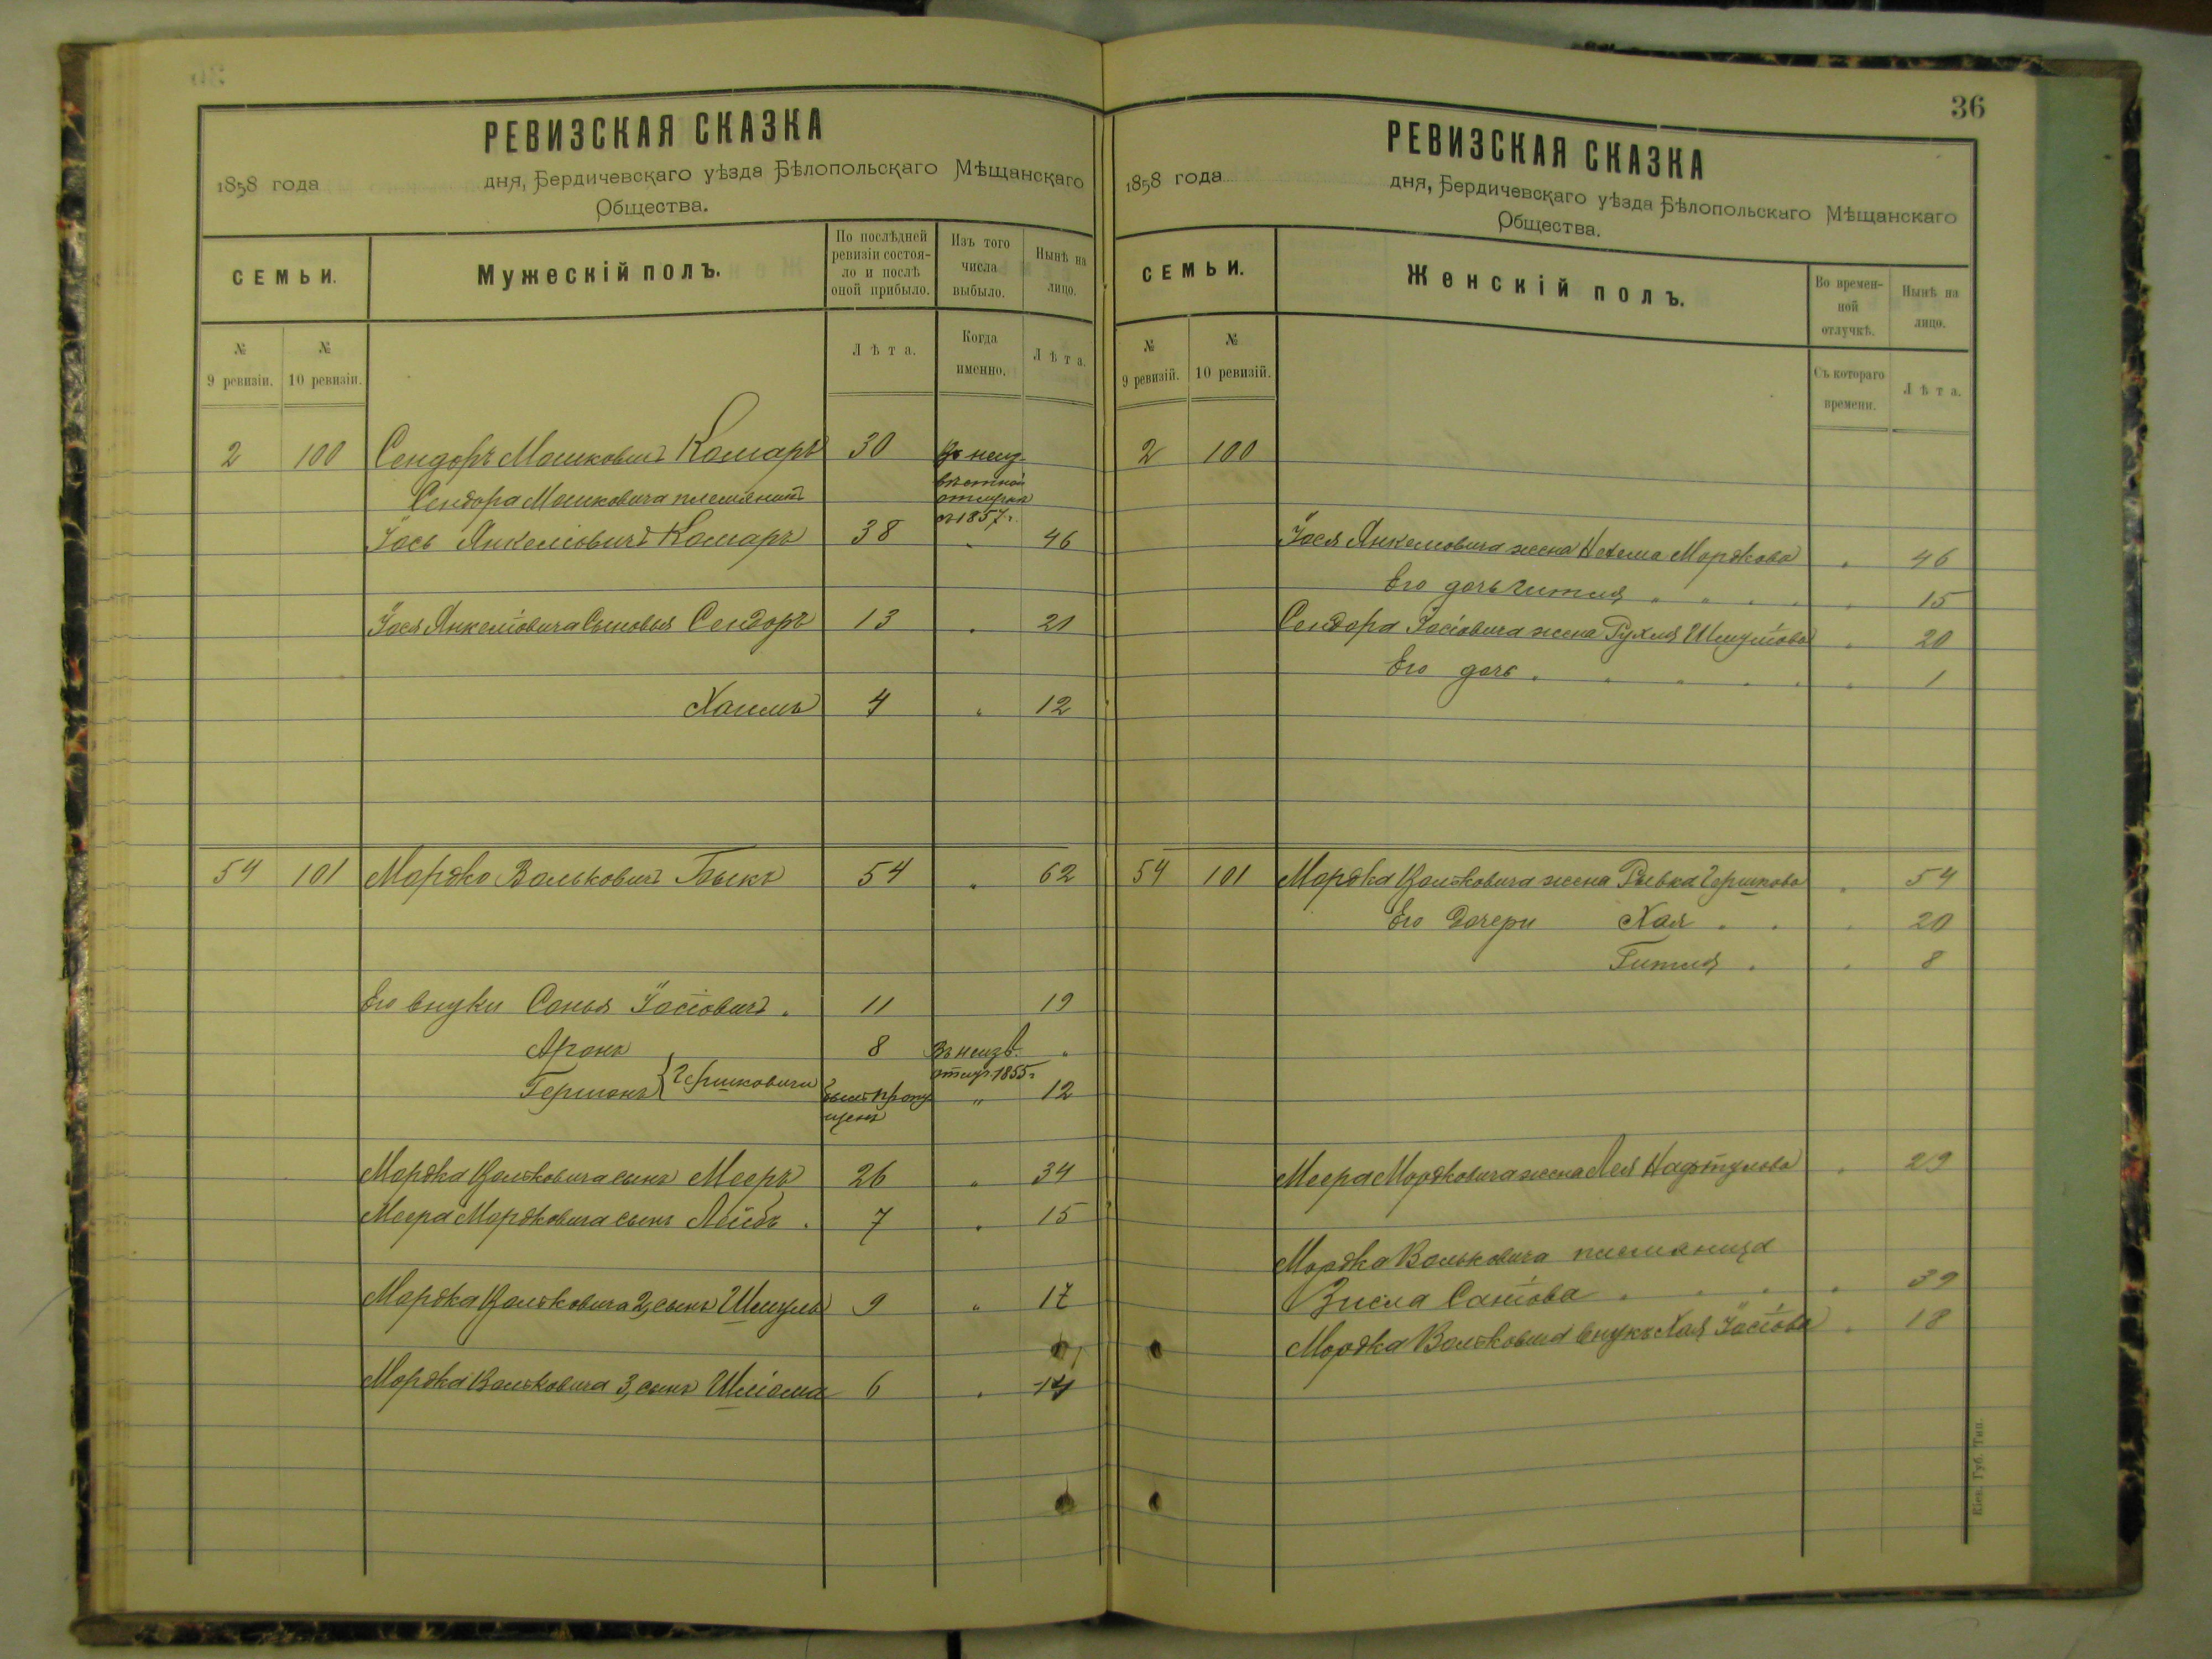 РЕВИЗСКАЯ СКАЗКА
1858 года дня, Бердичевскаго уѣзда Бѣлопольскаго Мѣщанскаго
Общества.
СЕМЬИ.
Мужескій полъ.
По послѣдней ревизіи состоя-
ло и послѣ
оной прибыло.
Изъ того
числа
выбыло.
Нынѣ на
лицо.
№
9 ревизіи.
№
10 ревизіи.
Лѣта.
Когда
именно.
Лѣта.
2 100 Сендоръ Мошковичъ Комаръ 30 Въ неиз-
вѣстной
Сендора Мошковича племянникъ отлучкѣ
съ 1857 г.
Іось Янкеліовичъ Комаръ 38 " 46
Іося Янкеліовича Сыновья Сендоръ 13 " 21
Хаимъ 4 " 12
54 101 Мордко Вольковичъ Быкъ 54 " 62
Его внуки Саныя Іосіовичъ 11 19
Аронъ 8 Въ неизв. "
отлуч. 1855 г.
Гершонъ } Гершковичи былъ пропу- " 12
щенъ
Мордка Вольковича сынъ Мееръ 26 " 34
Меера Мордковича сынъ Лейбъ 7 " 15
Мордка Вольковича 2, сынъ Шмуль 9 " 17
Мордка Вольковича 3, сынъ Шліома 6 " 14
36
РЕВИЗСКАЯ СКАЗКА
1858 года дня, Бердичевскаго уѣзда Бѣлопольскаго Мѣщанскаго
Общества.
СЕМЬИ.
Женскій полъ.
Во времен-
ной
отлучкѣ.
Нынѣ на
лицо.
№
9 ревизій.
№
10 ревизій.
Съ котораго
времени.
Лѣта.
2 100
Іося Янкеліовича жена Нехема Мордкова " 46
Его дочь Гитля " 15
Сендора Іосіовича жена Рухля Шмуліова " 20
Его дочь " 1
54 101 Мордка Вольковича жена Рывка Гершкова " 54
Его Дочери Хая " 20
Гитля " 8
Меера Мордковича жена Лея Нафтулова " 29
Мордка Вольковича племяница
Висла Саніова " 39
Мордка Вольковича внука Хая Іосіова " 18
Кіев. Губ. Тип.